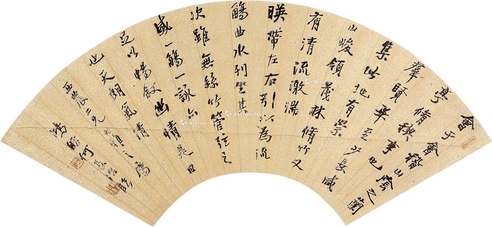 會于會稽山陰之蘭
亭脩禊事也
羣賢畢至少長咸
集此地有崇
山峻領茂林脩竹又
有清流激湍
暎帶左右引以為流
觴曲水列坐其
次雖無絲竹管弦之
盛一觴一詠亦
足以暢敘幽情是日
也天朗氣清
二兄
鴻舫何長治